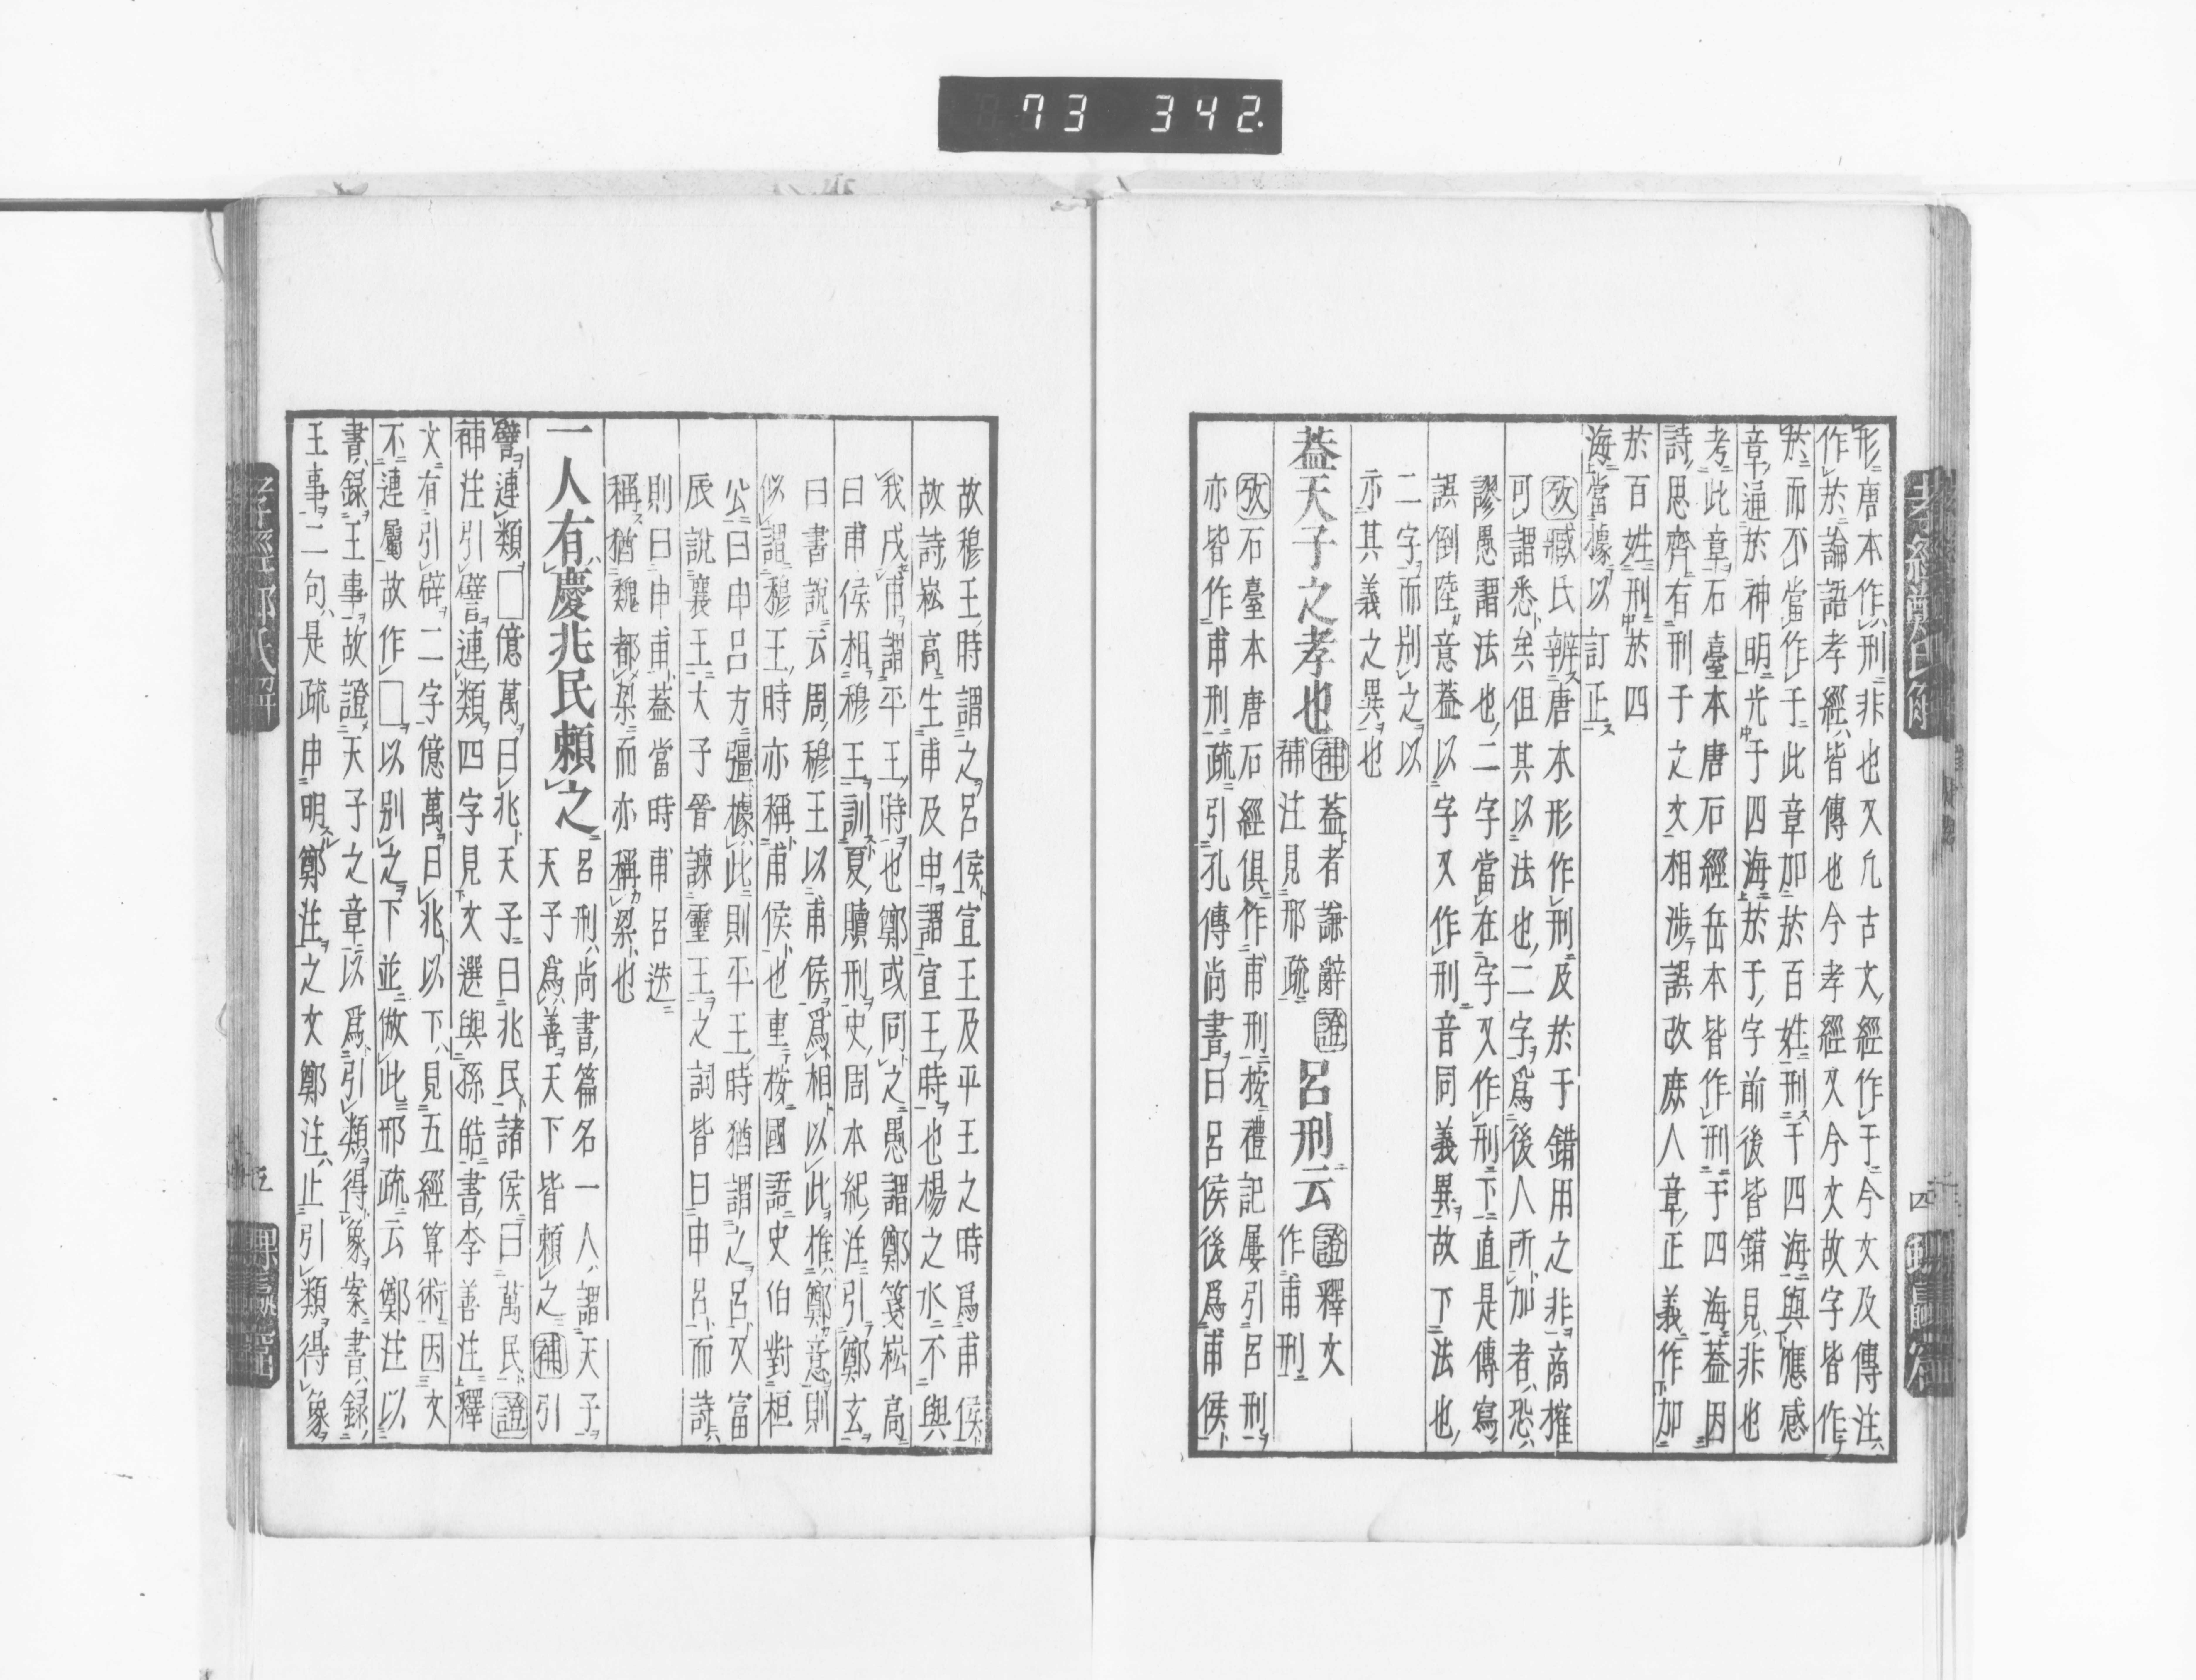 73 342.
形唐本作刑非也又凢古文經作于今文及傳注
作於論語孝經皆傳也今孝經又今文故字皆作
於而不當作于此章加於百姓刑于四海與應感
章通於神明光于四海於于字前後皆錯見非也
考此章石臺本唐石經岳本皆作刑于四海蓋因
詩思齊有刑于之文相涉誤改庶人章正義作加
於百姓刑於四
海當據以訂正
攷臧氏辨唐本形作刑及於于錯用之非商搉
可謂悉矣但其以法也二字爲後人所加者恐
謬愚謂法也二字當在字又作刑下直是傳寫
誤倒陸意蓋以字又作刑音同義異故下法也
二字而別之以
示其義之異也
蓋天子之孝也
補蓋者謙辭
補注見邢疏
證
呂刑云
證釋文
作甫刑
攷石臺本唐石經俱作甫刑按禮記屢引呂刑
亦皆作甫刑疏引孔傳尚書曰呂侯後爲甫侯
四
故穆王時謂之呂侯宣王及平王之時爲甫侯
故詩崧高生甫及申謂宣王時也楊之水不與
我戍甫謂平王時也鄭或同之愚謂鄭箋崧高
曰甫侯相穆王訓夏贖刑史周本紀注引鄭玄
曰書說云周穆王以甫侯爲相以此推鄭意則
似謂穆王時亦稱甫侯也重按國語史伯對桓
公曰申呂方彊據此則平王時猶謂之呂又富
辰說襄王大子晉諫靈王之詞皆曰申呂而詩
則曰申甫蓋當時甫呂迭
稱猶魏都梁而亦稱梁也
一人有慶兆民賴之
呂刑尚書篇名一人謂天子
天子爲善天下皆賴之補引
譬連類□億萬曰兆天子曰兆民諸侯曰萬民證
補注引譬連類四字見文選與孫皓書李善注釋
文有引辟二字億萬曰兆以下見五經算術因文
不連屬故作□以別之下並倣此邢疏云鄭注以
書錄王事故證天子之章以爲引類得象案書錄
王事二句是疏申明鄭注之文鄭注止引類得象
孝經鄭氏解
五